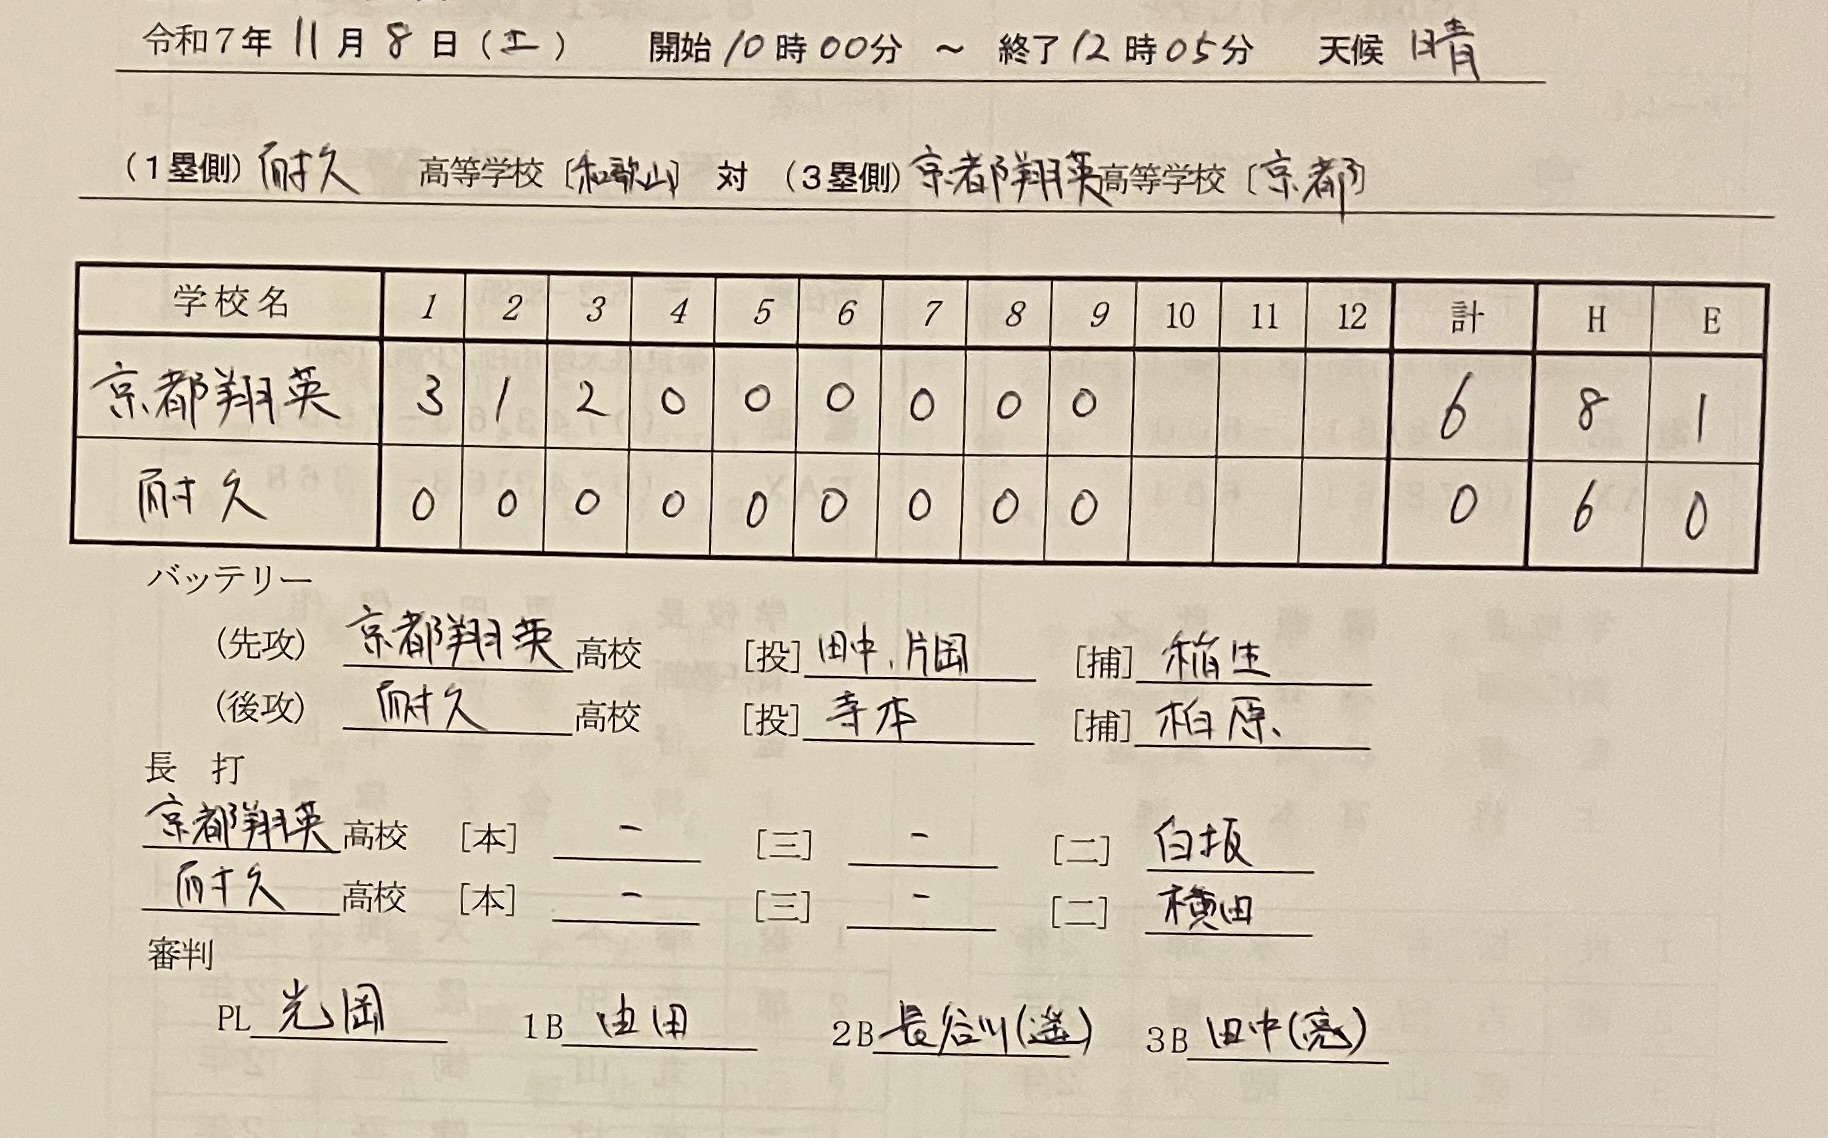 令和7年 11月 8日(土) 開始10時00分 ～ 終了12時05分 天候 晴
(1塁側) 耐久 高等学校 [和歌山] 対 (3塁側) 京都翔英高等学校 [京都]
学校名 1 2 3 4 5 6 7 8 9 10 11 12 計 H E
京都翔英 3 1 2 0 0 0 0 0 0 6 8 1
耐久 0 0 0 0 0 0 0 0 0 0 6 0
バッテリー
(先攻) 京都翔英 高校 [投] 田中、片岡 [捕] 稲生
(後攻) 耐久 高校 [投] 寺本 [捕] 柏原
長 打
京都翔英 高校 [本] - [三] - [二] 白坂
耐久 高校 [本] - [三] - [二] 横田
審判
PL 光岡 1B 由田 2B 長谷川(遥) 3B 田中(亮)